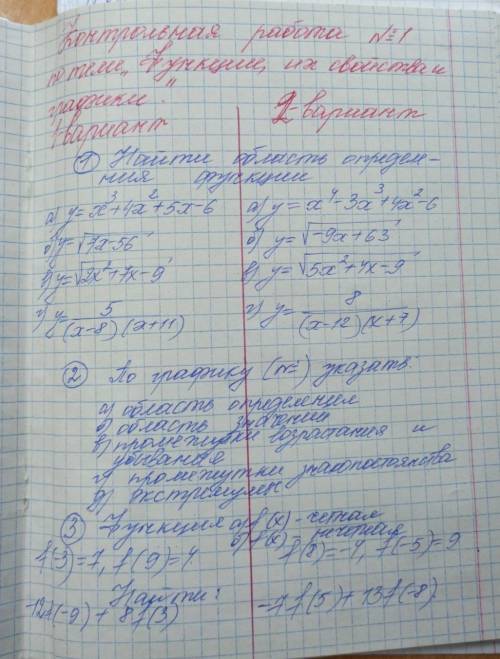 Контрольная работа №1
по теме „Функции, их свойства и
графики."
1 вариант 2-вариант
① Найти область определе-
ния функции
а) y=x³+4x²+5x-6 а) y=x⁴-3x³+4x²-6
б) y=√7x-56 б) y=√-9x+63
в) y=√2x²+7x-9 в) y=√5x²+4x-9
г) y=5/(x-8)(x+11) г) y=8/(x-12)(x+7)
② По графику (№) указать:
а) область определения
б) область значений
в) промежутки возрастания и
убывания
г) промежутки знакопостоянства
д) экстремумы
③ Функция а) f(x)-четная
б) f(x)-нечетная
f(3)=7, f(9)=4 f(8)=-4, f(-5)=9
Найти:
-12f(-9)+8f(3) -7f(5)+13f(-8)